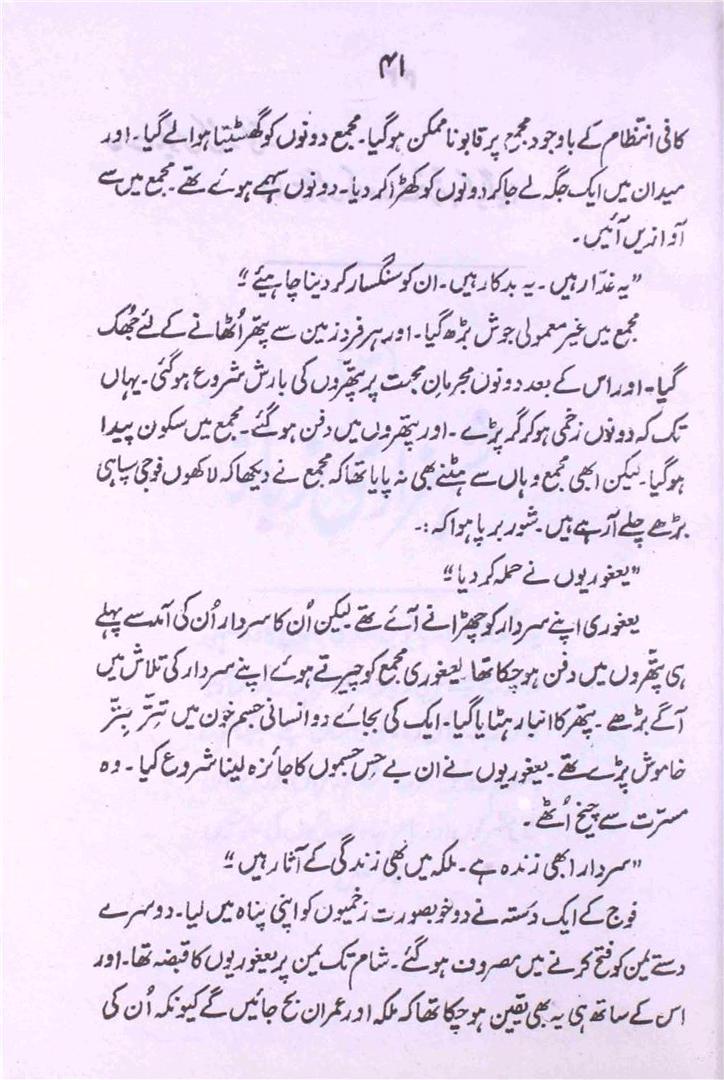 ۴۱
کافی انتظام کے باوجود مجمع پر قابو ناممکن ہوگیا۔ مجمع دونوں کو گھسیٹتا ہوا لے گیا۔ اور
میدان میں ایک جگہ لے جاکر دونوں کو کھڑا کر دیا۔ دونوں سہمے ہوئے تھے۔ مجمع میں سے
آوازیں آئیں۔
”یہ غدّار ہیں۔ یہ بدکار ہیں۔ ان کو سنگسار کر دینا چاہیئے“
مجمع میں غیر معمولی جوش بڑھ گیا۔ اور ہر فرد زمین سے پتھر اُٹھانے کے لئے جُھک
گیا۔ اور اس کے بعد دونوں مجرمانِ محبت پر پتھّروں کی بارش شروع ہوگئی۔ یہاں
تک کہ دونوں زخمی ہوکر گر پڑے۔ اور پتھروں میں دفن ہوگئے۔ مجمع میں سکون پیدا
ہوگیا۔ لیکن ابھی مجمع وہاں سے ہٹنے بھی نہ پایا تھا کہ مجمع نے دیکھا کہ لاکھوں فوجی سپاہی
بڑھے چلے آرہے ہیں۔ شور برپا ہوا کہ :۔
”یعغوریوں نے حملہ کر دیا“
یعغوری اپنے سردار کو چھڑانے آئے تھے لیکن اُن کا سردار اُن کی آمد سے پہلے
ہی پتھّروں میں دفن ہوچکا تھا۔ یعغوری مجمع کو چیرتے ہوئے اپنے سردار کی تلاش میں
آگے بڑھے۔ پتھر کا انبار ہٹایا گیا۔ ایک کی بجائے دو انسانی جسم خون میں تتّر بتّر
خاموش پڑے تھے۔ یعغوریوں نے ان بے حِس جسموں کا جائزہ لینا شروع کیا۔ وہ
مسرّت سے چیخ اُٹھے۔
”سردار ابھی زندہ ہے۔ ملکہ میں بھی زندگی کے آثار ہیں“
فوج کے ایک دَستہ نے دو خوبصورت زخمیوں کو اپنی پناہ میں لیا۔ دوسرے
دستے یمن کو فتح کرنے میں مصروف ہوگئے۔ شام تک یمن پر یعغوریوں کا قبضہ تھا۔ اور
اس کے ساتھ ہی یہ بھی یقین ہوچکا تھا کہ ملکہ اور عمران بچ جائیں گے کیونکہ اُن کی